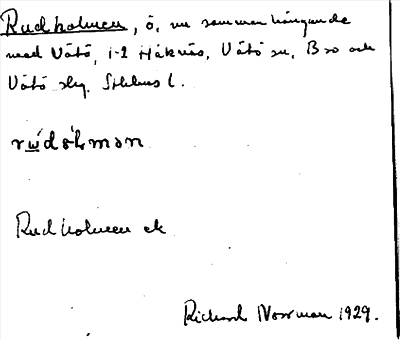 Rudholmen, ö, nu sammanhängande
med Vätö, 1-2 Håknäs, Vätö sn, Bro och
Vätö skg. Sthlms l.
Rudholmen ek
Rickard Norrman 1929.